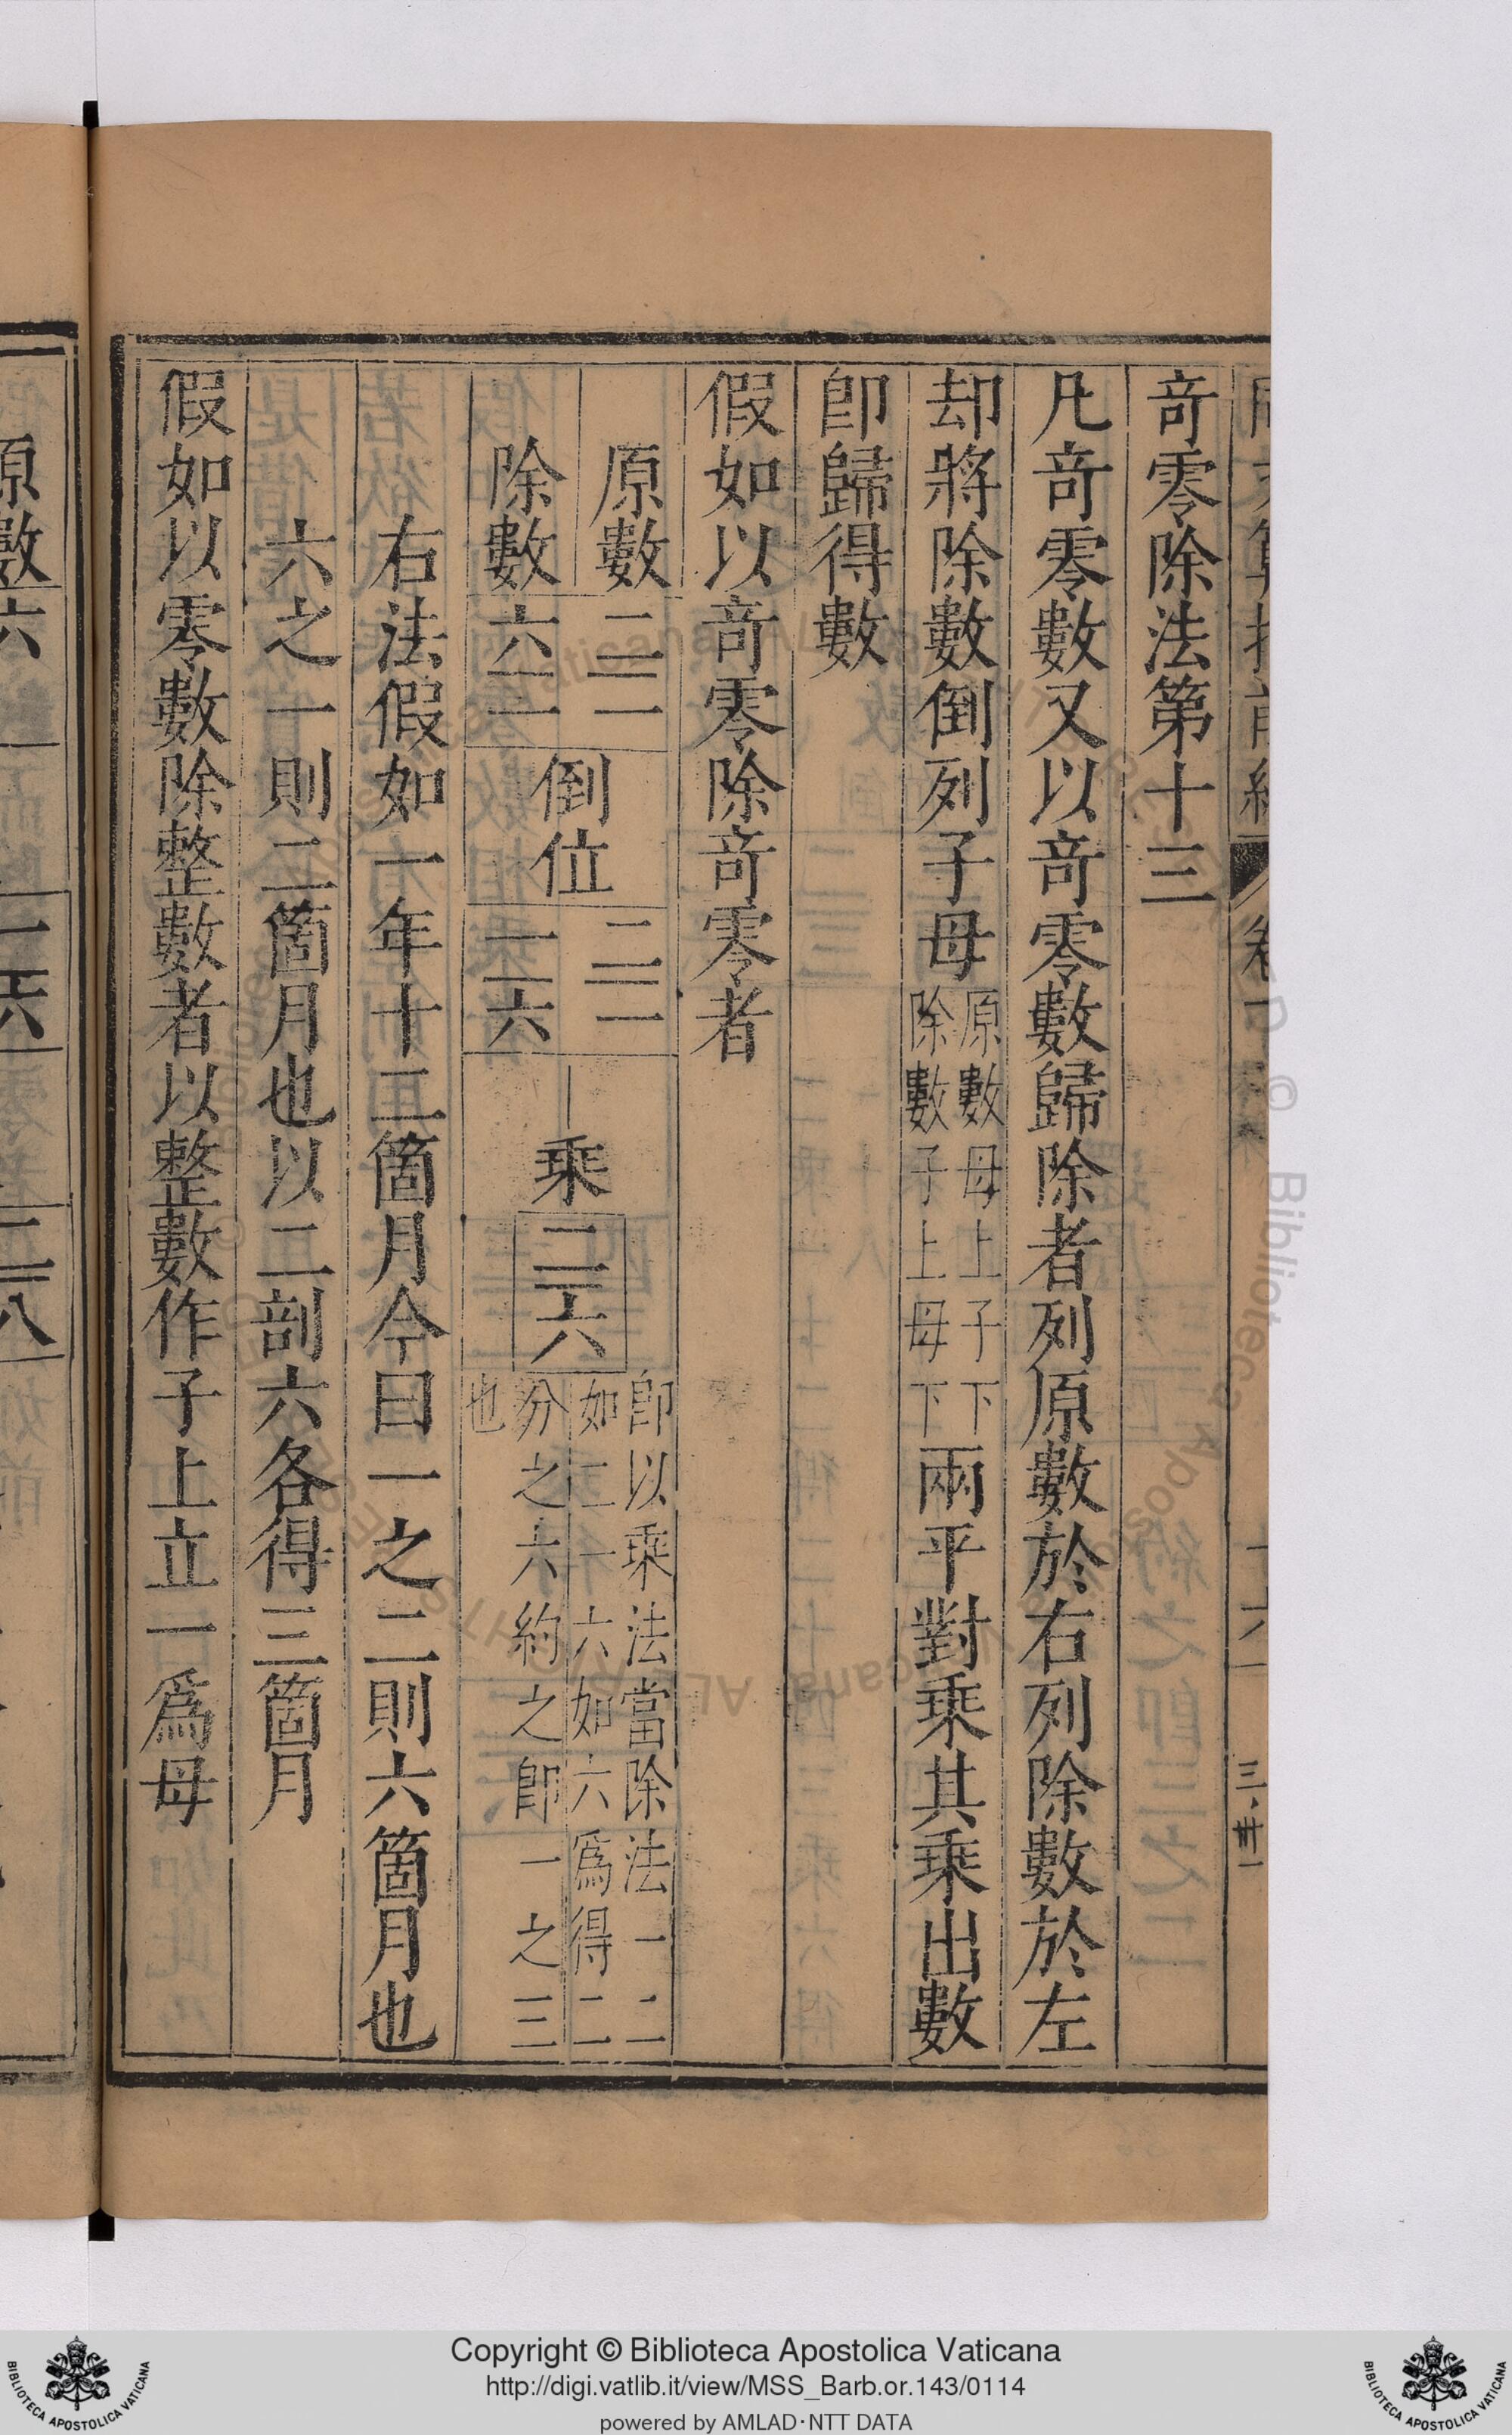 竒零除法第十三
凡竒零數又以竒零數歸除者列原數於右列除數於左
却將除數倒列子母原數母上子下除數子上母下兩平對乘其乘出數
即歸得數
假如以竒零除竒零者
原數 二 三 一
除數 六 二 一
倒位
二 三 一
一 二 六
乘
二 三 六
即以乘法當除法一二
如二一六如六爲得二
分之六約之即一之三
也
右法假如一年十二箇月今曰一之二則六箇月也
六之一則二箇月也以二剖六各得三箇月
假如以零數除整數者以整數作子上立一爲母
原數
Copyright © Biblioteca Apostolica Vaticana
http://digi.vatlib.it/view/MSS_Barb.or.143/0114
powered by AMLAD·NTT DATA
BIBLIOTECA APOSTOLICA VATICANA
BIBLIOTECA APOSTOLICA VATICANA